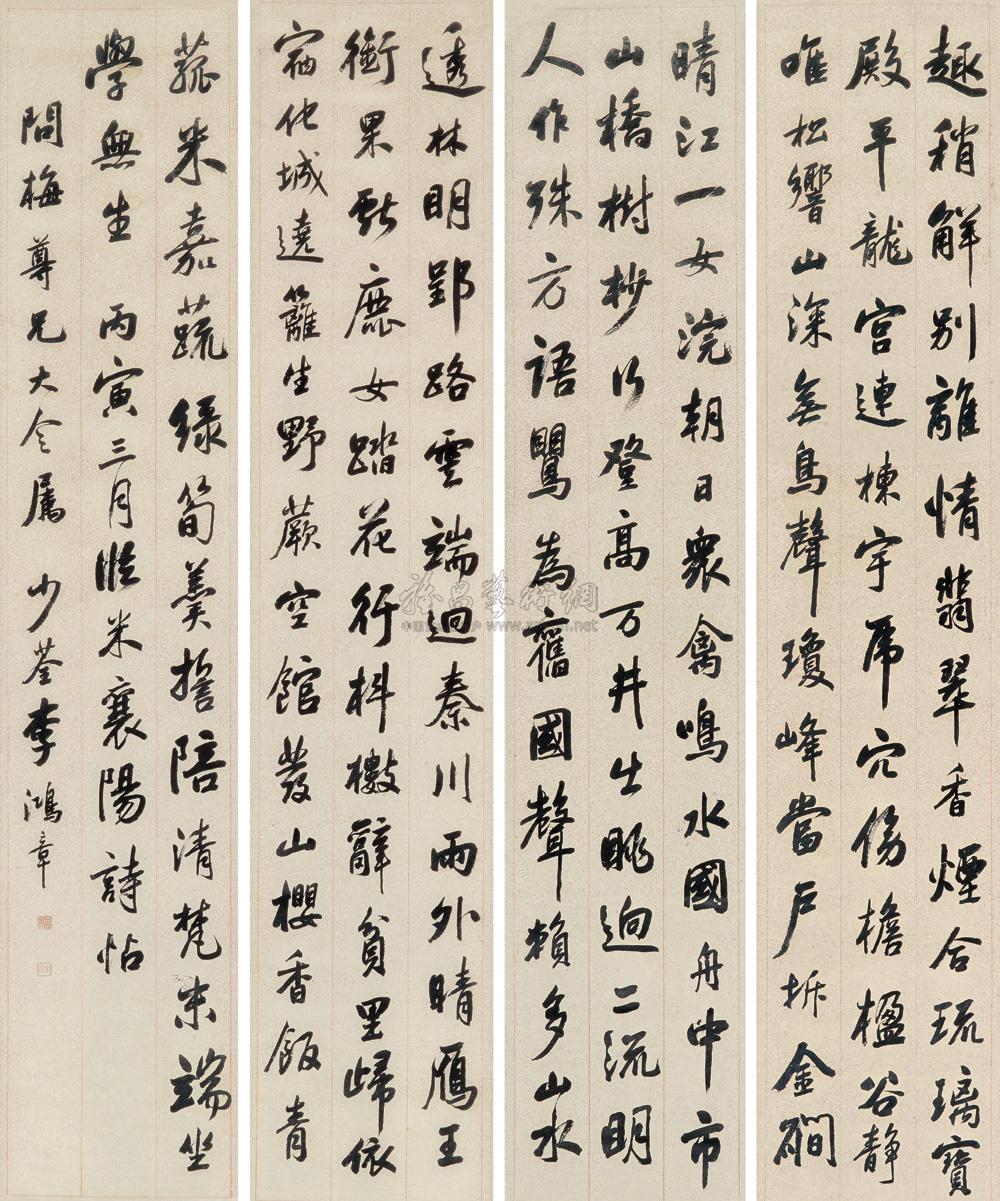 趣稍解别離情翡翠香煙合琉璃寶
殿平龍宫連棟宇虎穴傍檐楹谷静
唯松響山深無鳥聲瓊峰當户坼金磵
晴江一女浣朝日衆禽鳴水國舟中市
山橋樹杪行登高万井出眺迥二流明
人作殊方語鸎為舊國聲賴多山水
透林明郢路雲端迥秦川雨外晴鴈王
銜果獻鹿女踏花行抖擻辭貧里歸依
宿化城遶籬生野蕨空館發山櫻香飯青
菰米嘉蔬緑筍羹誓陪清梵末端坐
學無生 丙寅三月臨米襄陽詩帖
問梅尊兄大令属 少荃李鴻章
雅昌藝術網